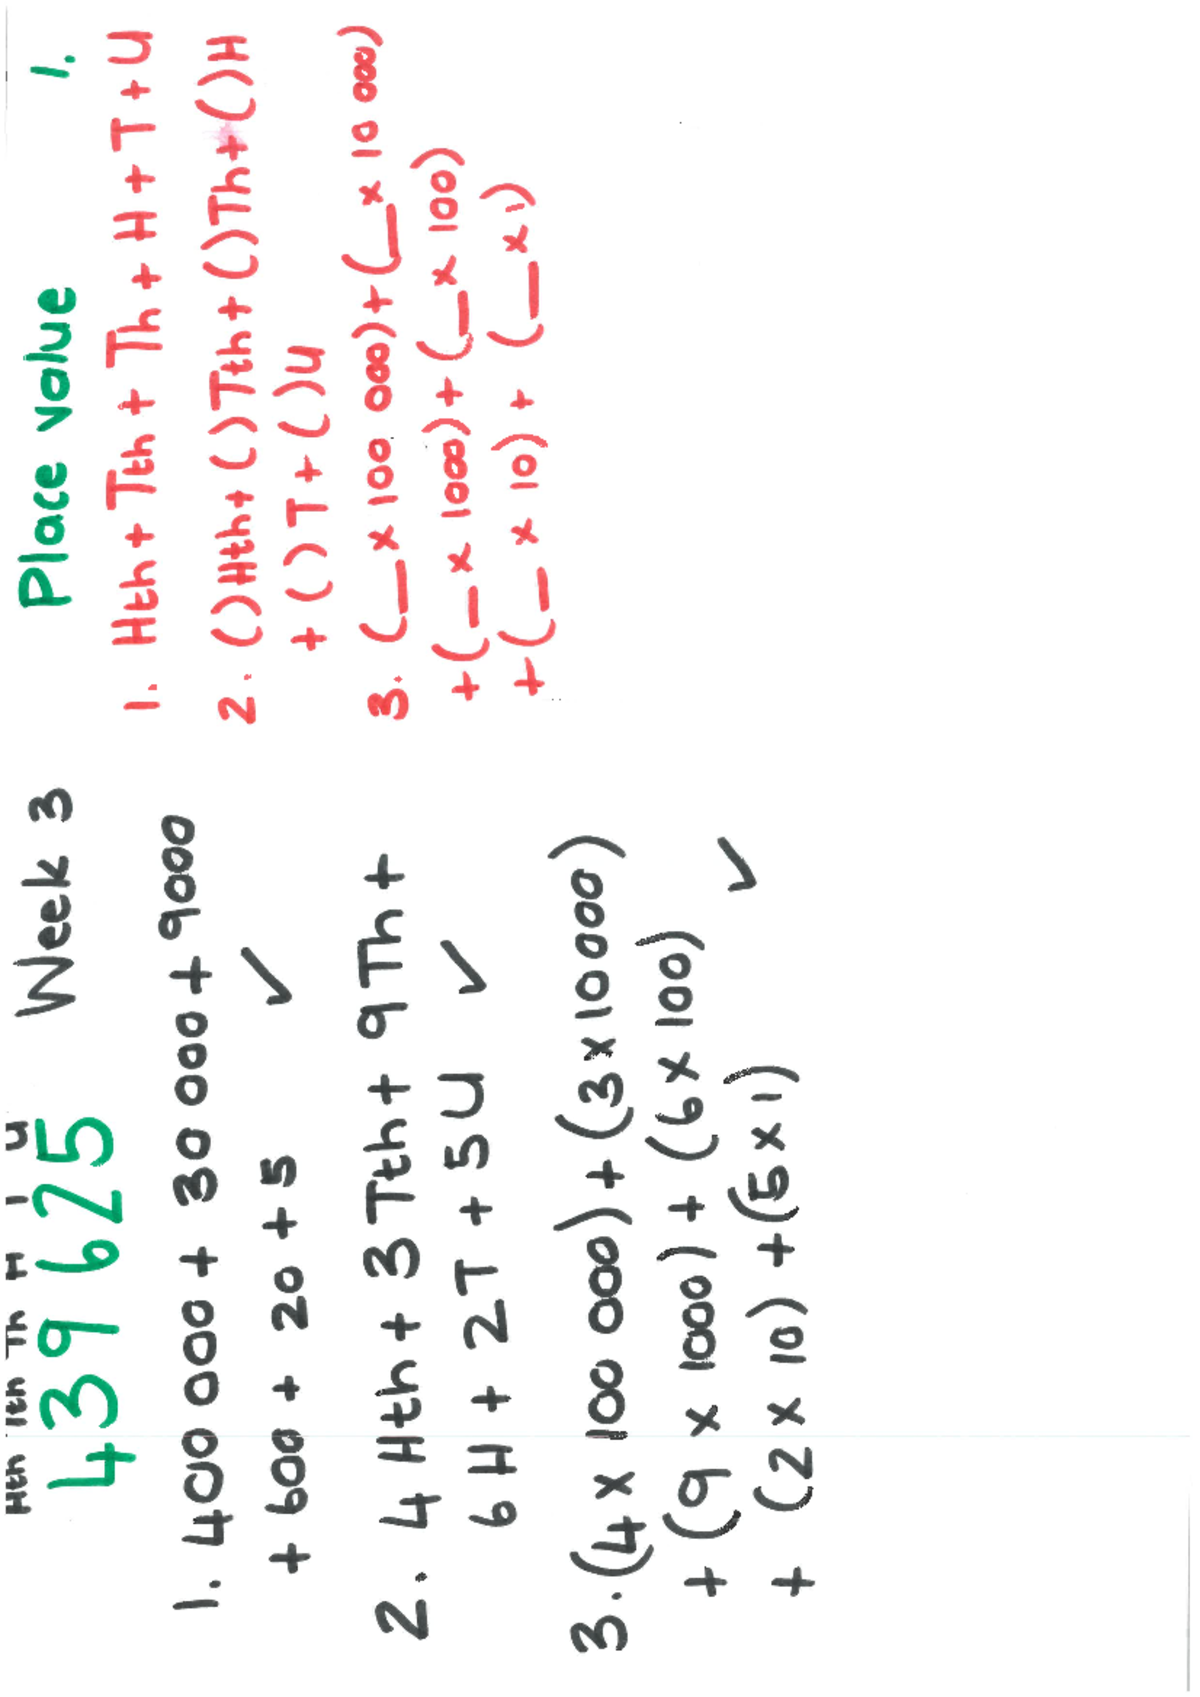 Hth Tth Th H T U
439 625 Week 3
1. 400 000 + 30 000 + 9000
+ 600 + 20 + 5 ✓
2. 4 Hth + 3 Tth + 9 Th +
6 H + 2T + 5U ✓
3. (4 x 100 000) + (3 x 10 000)
+ (9 x 1000) + (6 x 100)
+ (2 x 10) + (5 x 1) ✓
Place value 1.
1. Hth + Tth + Th + H + T + U
2. ()Hth + ()Tth + ()Th + ()H
+ ()T + ()U
3. (__ x 100 000) + (__ x 10 000)
+ (__ x 1000) + (__ x 100)
+ (__ x 10) + (__ x 1)